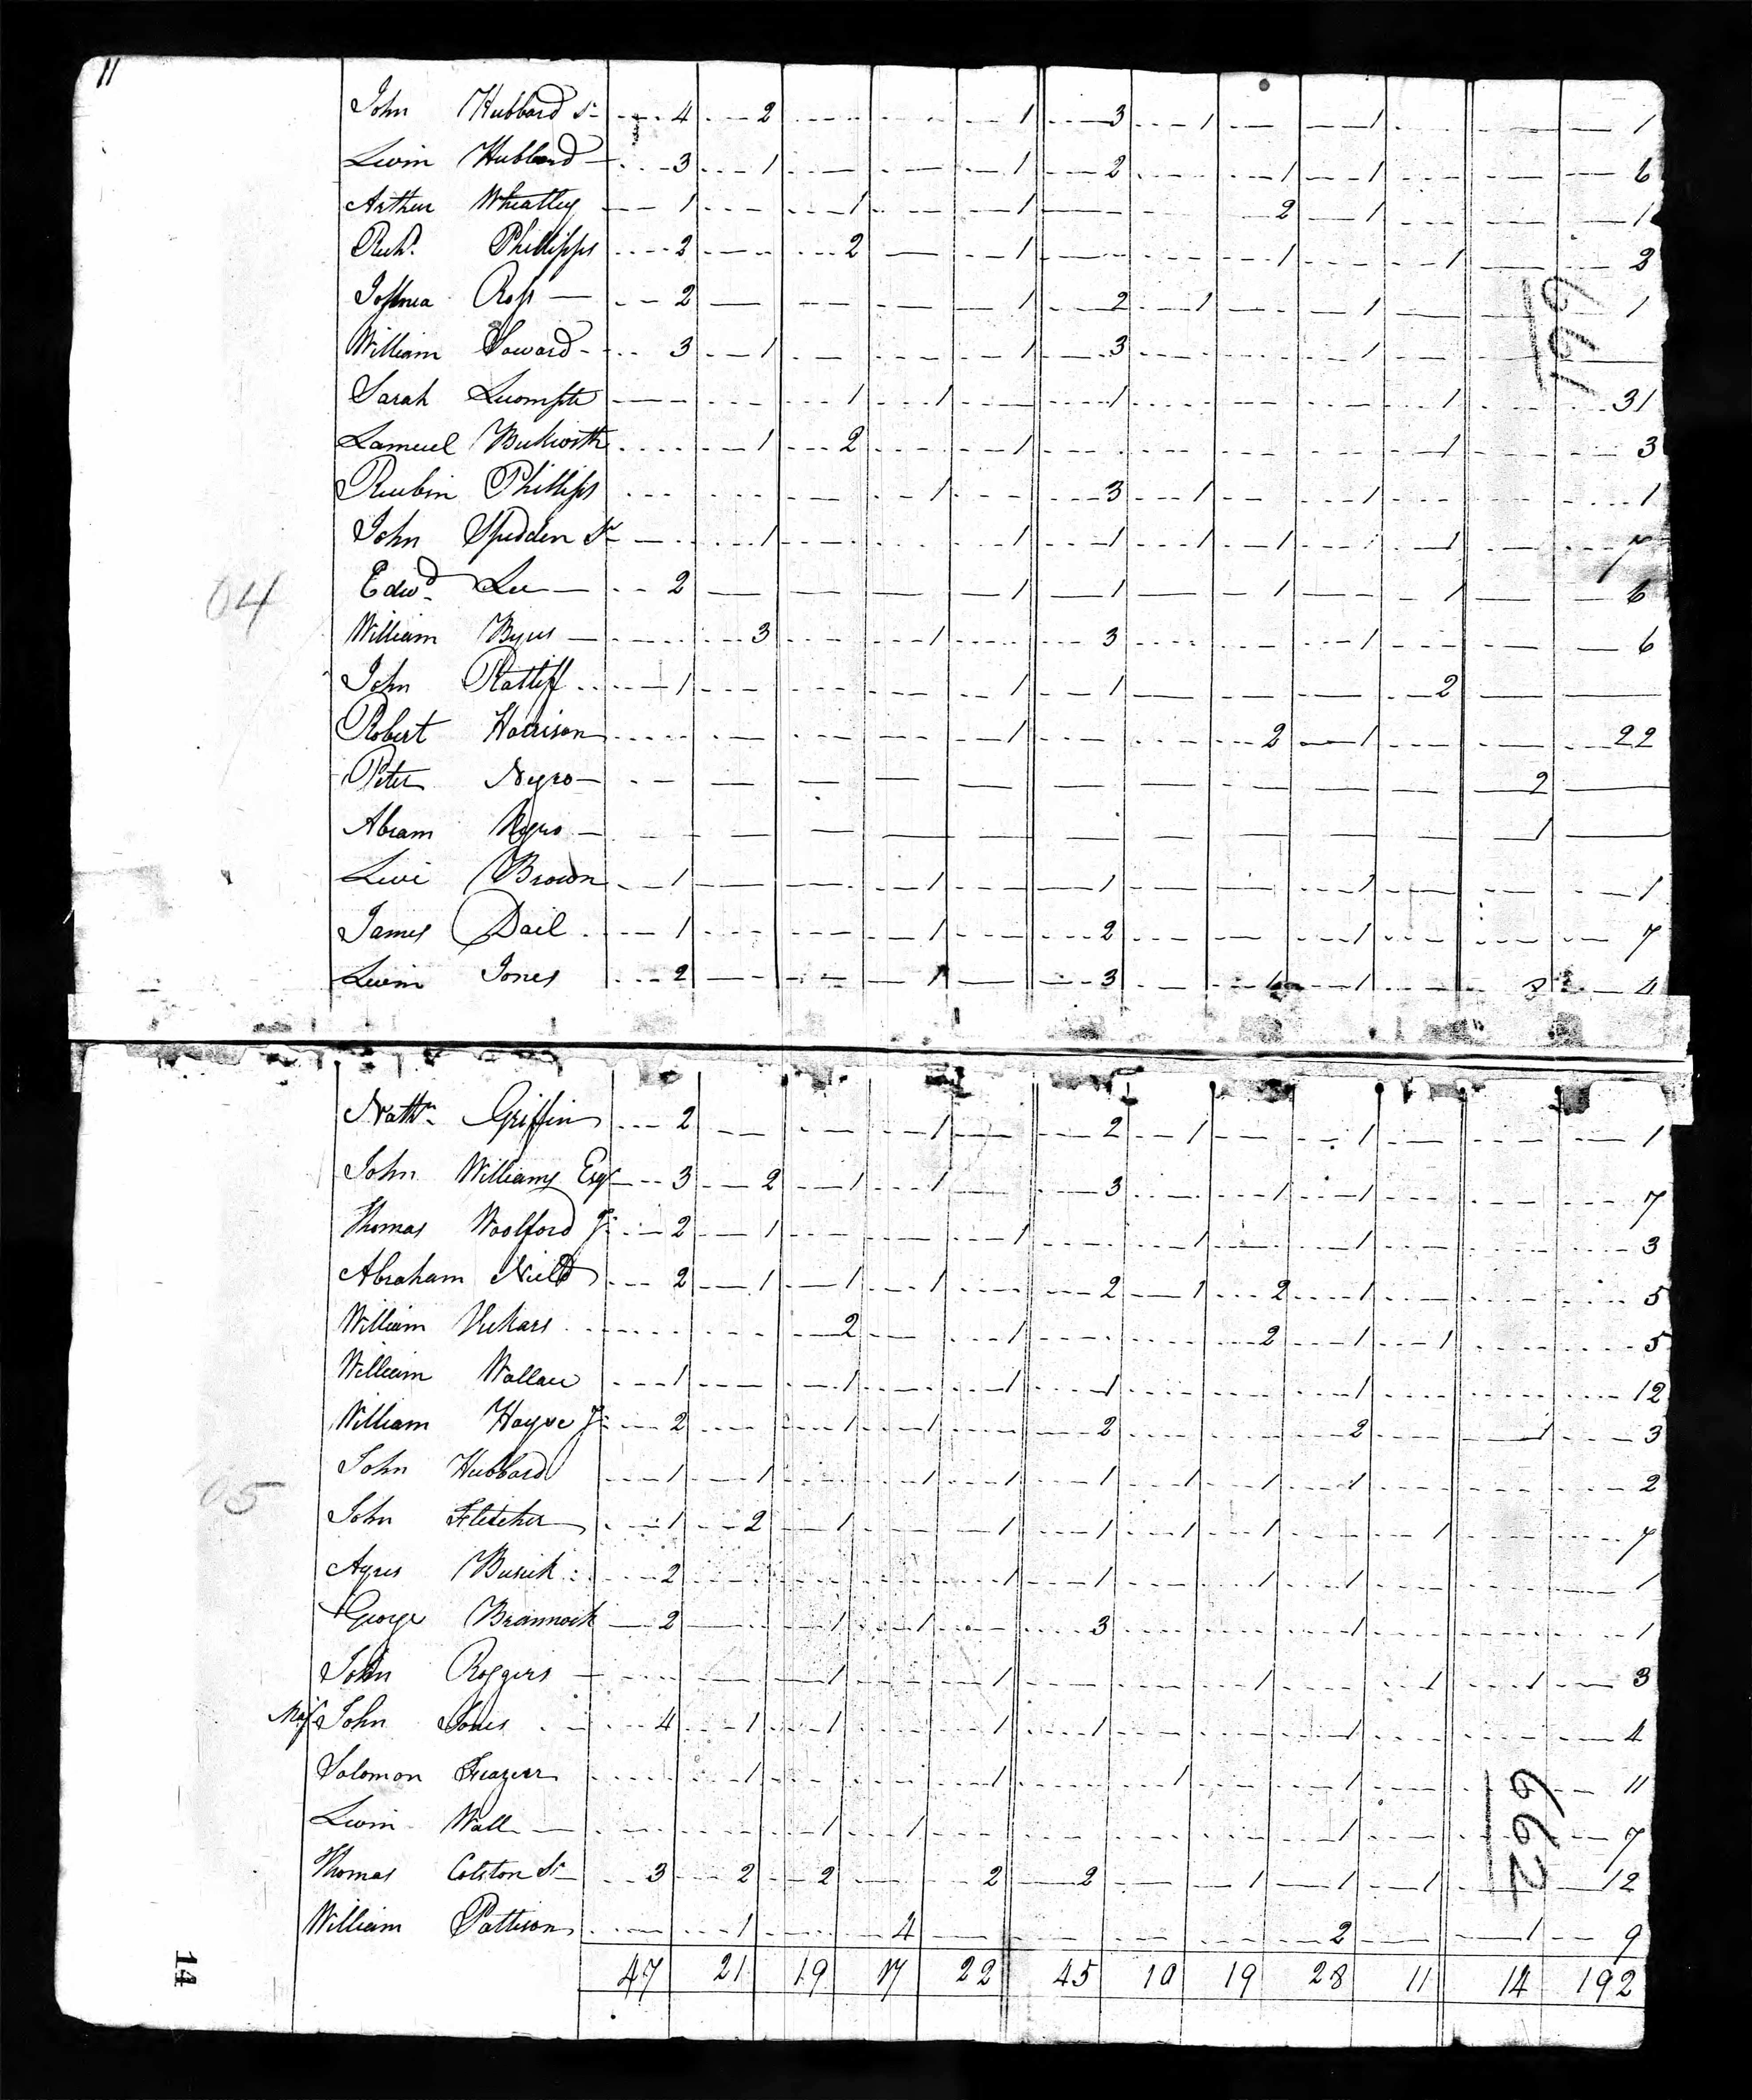 11
John Hubbard Sr 4 2 1 3 1 1 1
Levin Hubbard 3 1 1 2 1 1 6
Arthur Wheatley 1 1 1 2 1 1
Richd. Phillipps 2 2 1 1 1 2
Joshua Ross 2 1 2 1 1 1
William Saward 3 1 1 3 1
Sarah Lecompte 1 1 1 1 31
Lamuel 1 2 1 1 3
Reubin Phillips 1 3 1 1 1
John Spedden Sr 1 1 1 1 1 1 7
04
Edwd. Lee 2 1 1 1 1 6
William Byus 3 1 3 1 6
John Ratliff 1 1 1 2
Robert Harrison 1 2 1 22
Peter Negro 2
Abram Negro 1
Levi Brown 1 1 1 1 1
James Dail 1 1 2 1 7
Levin Jones 2 1 3 1 1 8 4
199
Nathn. Griffin 2 1 2 1 1 1
John Williams Esqr 3 2 1 1 3 1 1 7
Thomas Woolford Jr 2 1 1 1 1 3
Abraham Nield 2 1 1 1 2 1 2 1 5
William Vickars 2 1 2 1 1 5
William Wallace 1 1 1 1 1 12
William Hayse Jr 2 1 1 2 2 1 3
John Hubbard 1 1 1 1 1 1 1 1 2
05
John Fletcher 1 2 1 1 1 1 1 1 7
Ayres Busick 2 1 1 1 1 1
George Brannock 2 1 1 3 1 1
John Roggers 1 1 1 1 1 3
Maj John Jones 4 1 1 1 1 1 4
Solomon Frazier 1 1 1 1 11
Levin Wall 1 1 1 7
Thomas Colston Sr 3 2 2 2 2 1 1 1 12
William Pattison 1 4 2 1 9
47 21 19 17 22 45 10 19 28 11 14 192
266
14